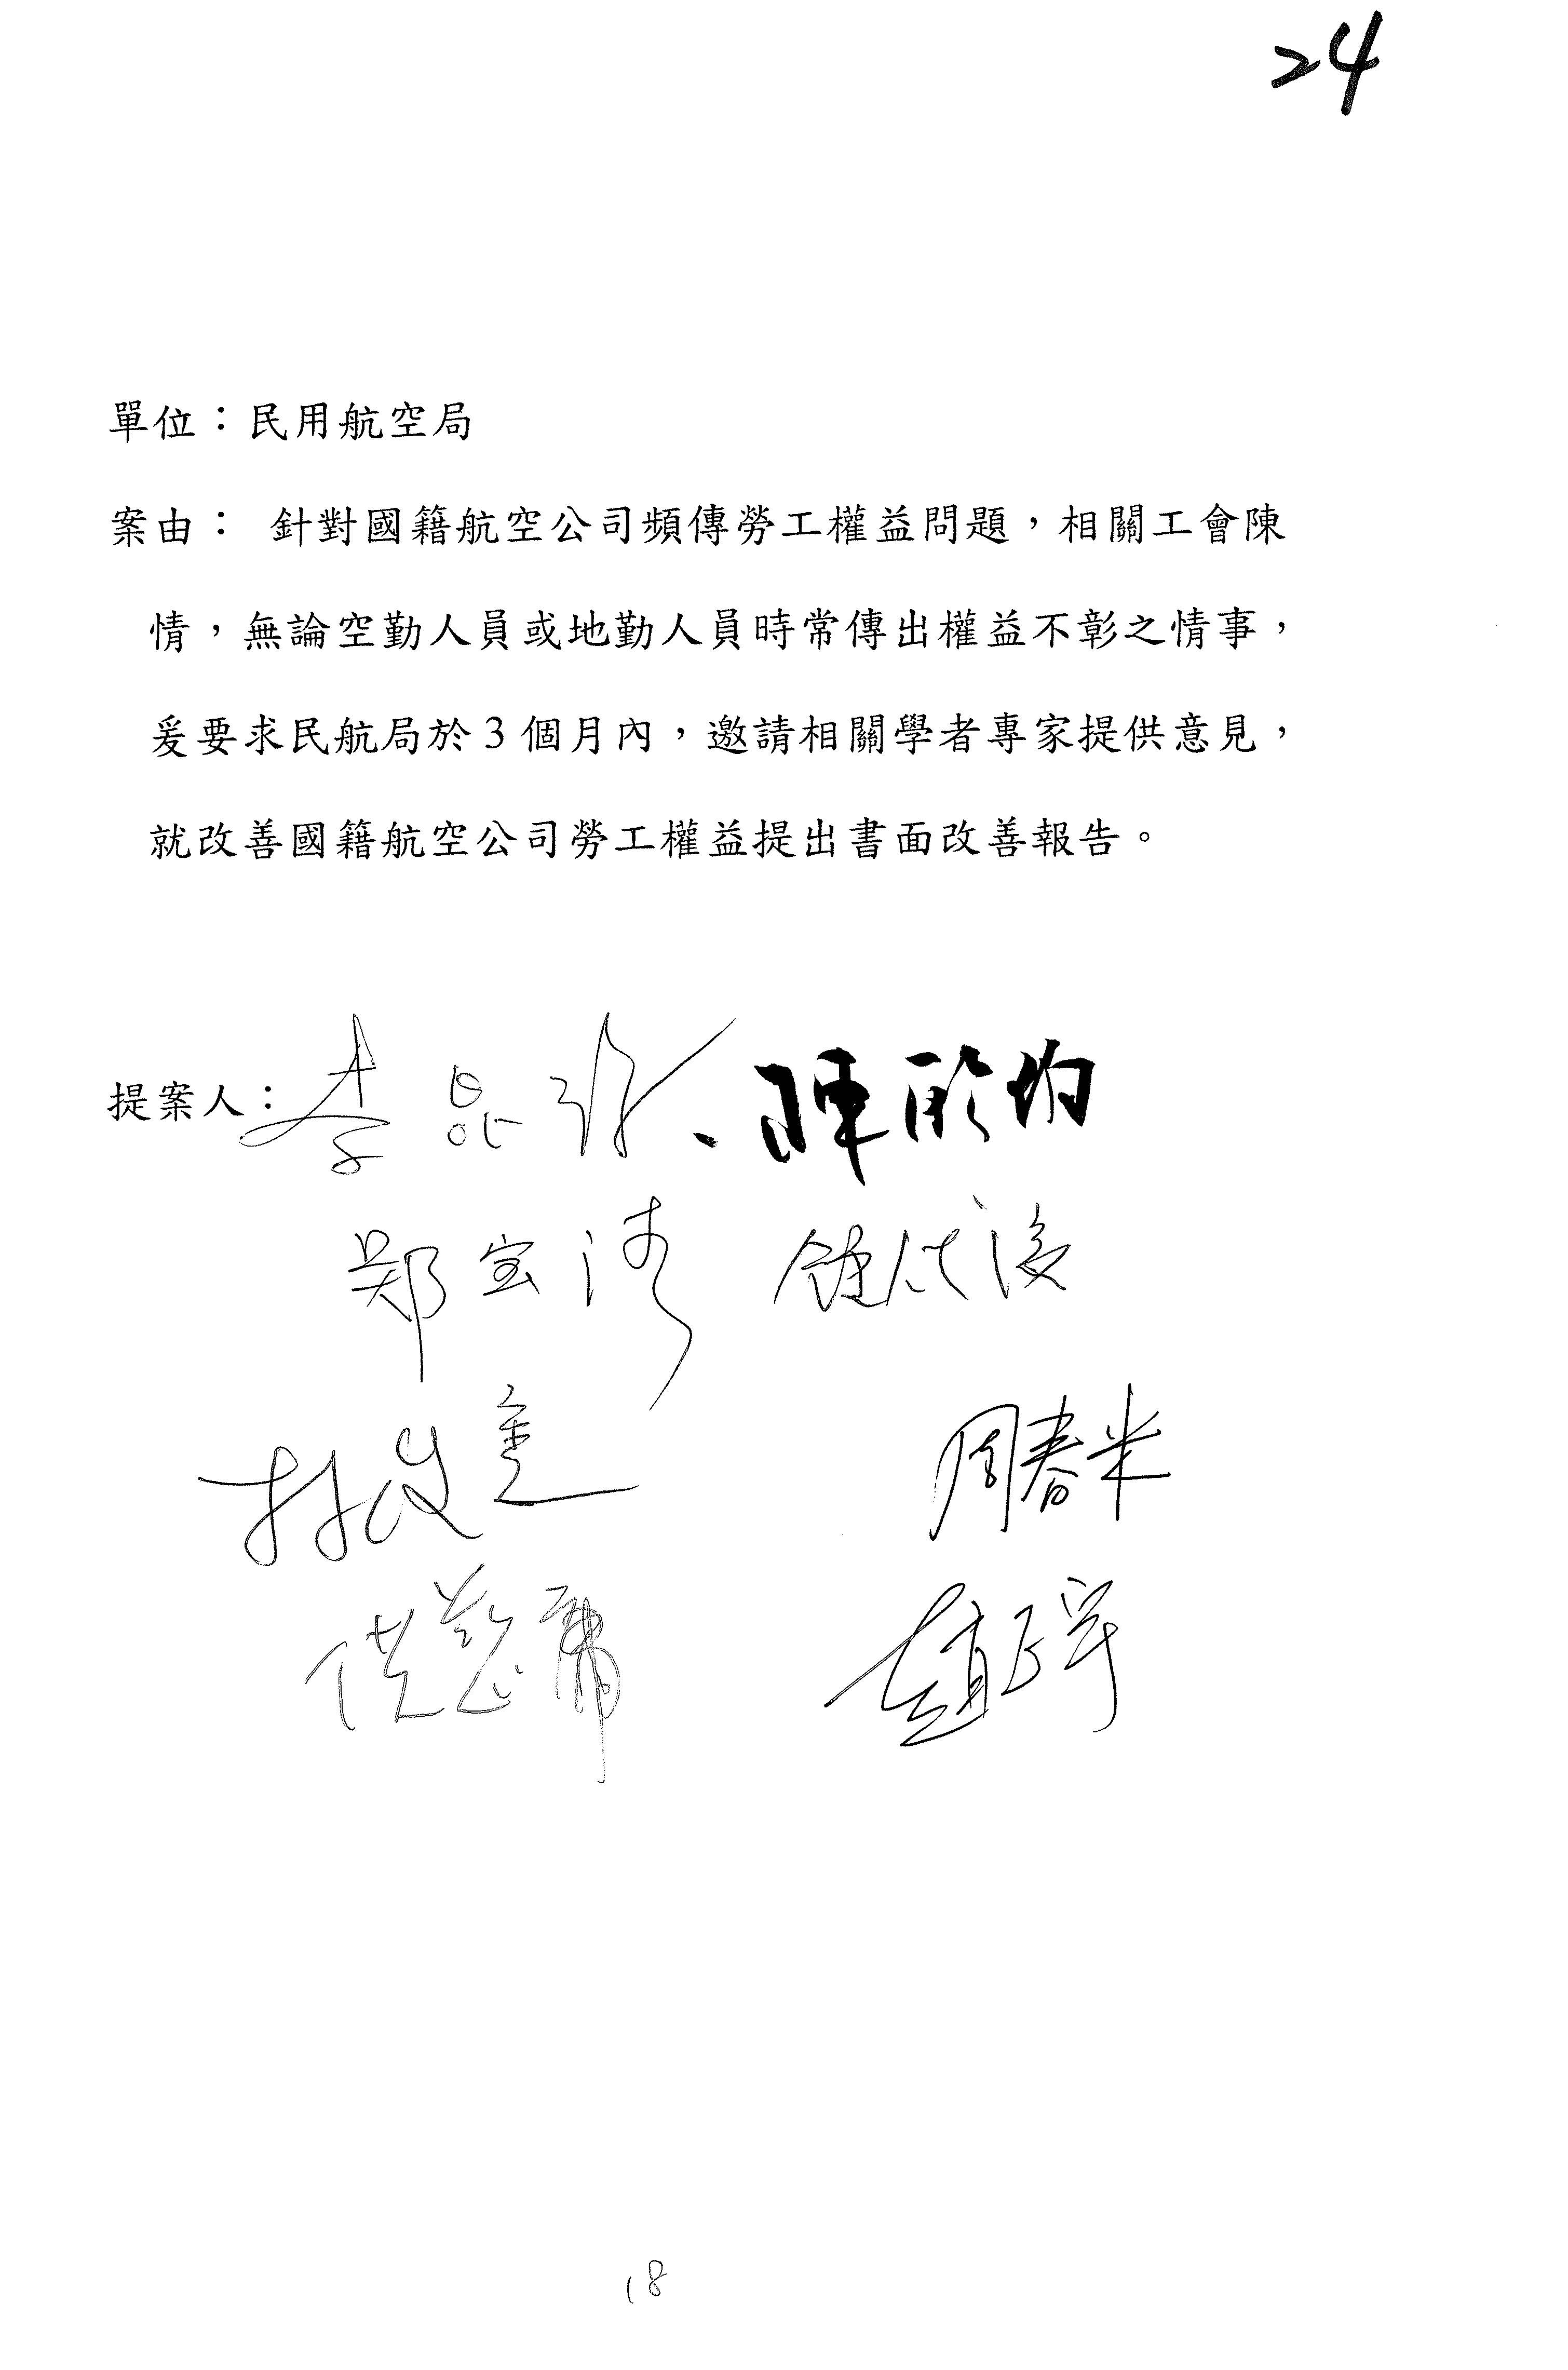 24
單位：民用航空局
案由： 針對國籍航空公司頻傳勞工權益問題，相關工會陳
情，無論空勤人員或地勤人員時常傳出權益不彰之情事，
爰要求民航局於3個月內，邀請相關學者專家提供意見，
就改善國籍航空公司勞工權益提出書面改善報告。
提案人：李昆澤、陳歐珀
鄭宝清
林俊憲 周春米
洪慈庸 趙正宇
18